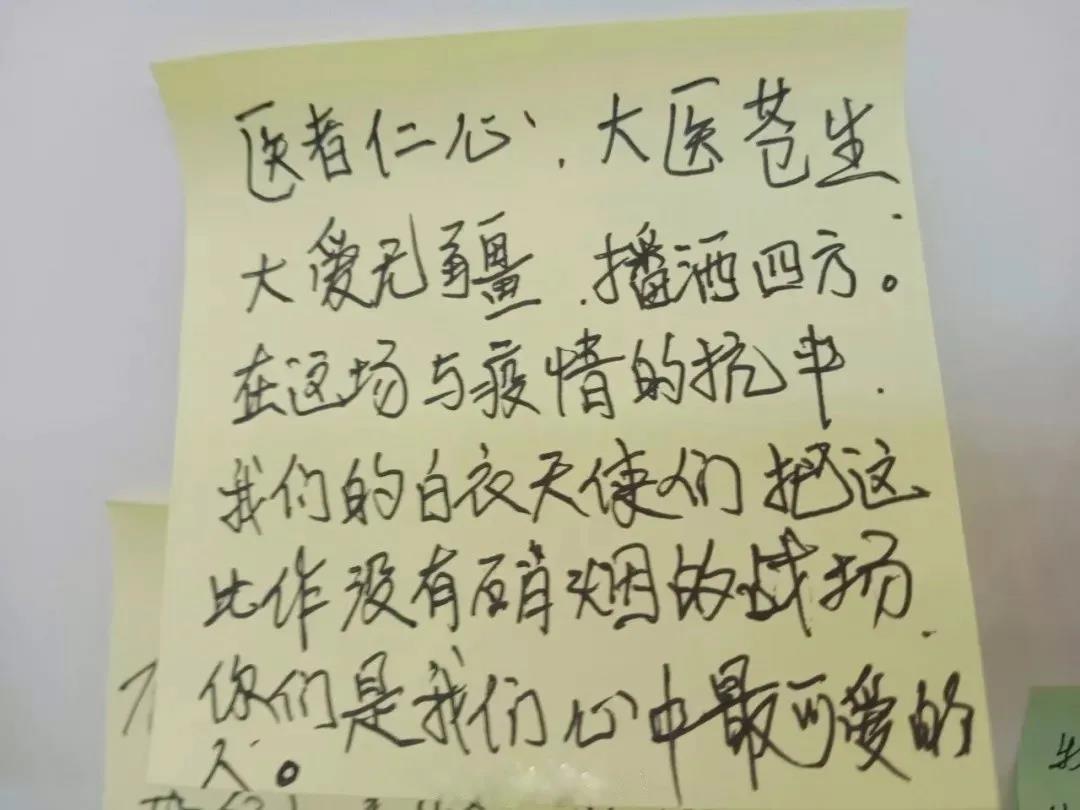 医者仁心，大医苍生
大爱无疆，播洒四方。
在这场与疫情的抗中，
我们的白衣天使们把这
比作没有硝烟的战场，
你们是我们心中最可爱的
人。